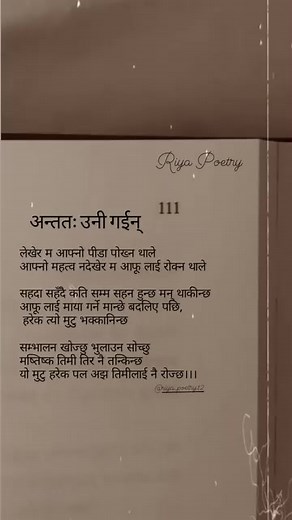 Riya Poetry
111
अन्ततः उनी गईन्
लेखेर म आफ्नो पीडा पोख्न थाले
आफ्नो महत्व नदेखेर म आफू लाई रोक्न थाले
सहदा सहँदै कति सम्म सहन हुन्छ मन् थाकीन्छ
आफू लाई माया गर्ने मान्छे बदलिए पछि,
हरेक त्यो मुटु भक्कानिन्छ
सम्भालन खोज्छु भुलाउन सोच्छु
मष्तिष्क तिमी तिर नै तन्किन्छ
यो मुटु हरेक पल अझ तिमीलाई नै रोज्छ।।।
@riya.poetry12